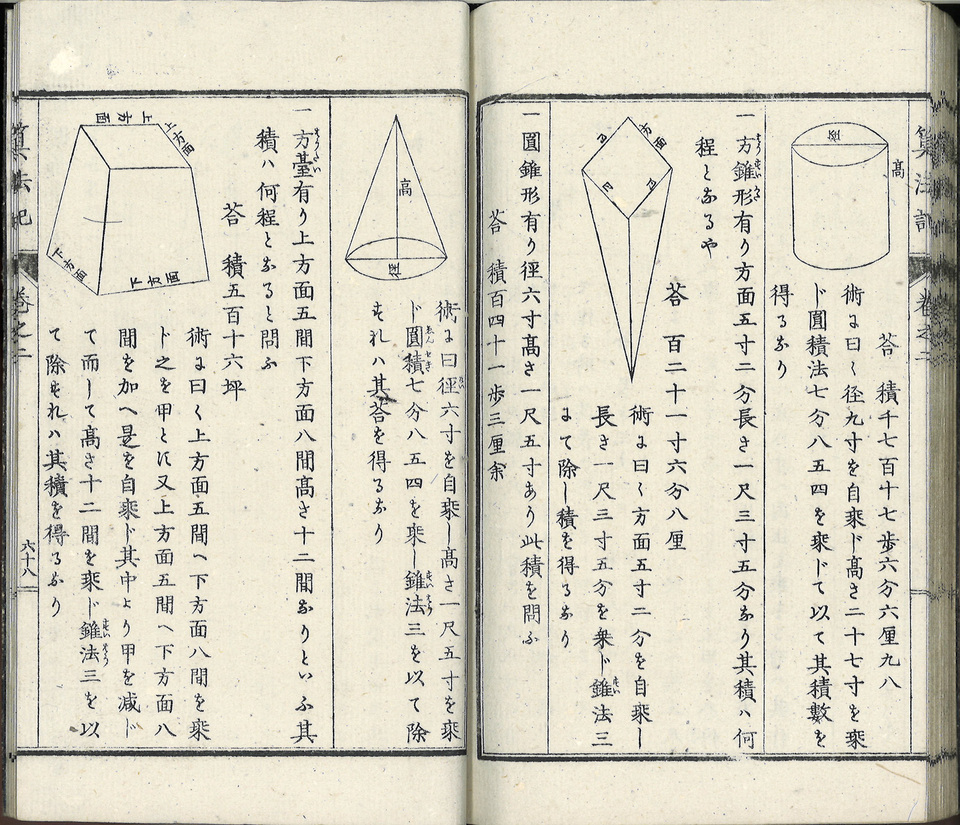 算法記
巻之二
径
高
荅　積千七百十七歩六分六厘九八
術ニ曰く径九寸を自乗ド高さ二十七寸を乗
ド圓積法七分八五四を乗ドて以て其積數を
得るあり
一方錐形有り方面五寸二分長さ一尺三寸五分あり其積ハ何
程となるや
方面
荅　百二十一寸六分八厘
術ニ曰く方面五寸二分を自乗し
長さ一尺三寸五分を乗ド錐法三
よて除し積を得るあり
一圓錐形有り径六寸高さ一尺五寸あり此積を問ふ
荅　積百四十一歩三厘余
高
径
術ニ曰径六寸を自乗し高さ一尺五寸を乗
ド圓積七分八五四を乗し錐法三を以て除
すれハ其荅を得るあり
一方臺有り上方面五間下方面八間高さ十二間ありといふ其
積ハ何程となると問ふ
荅　積五百十六坪
上方面
上方面
下方面
下方面
術ニ曰く上方面五間へ下方面八間を乗
ド之を甲とし又上方面五間へ下方面八
間を加へ是を自乗ド其中より甲を減ド
て而して高さ十二間を乗ド錐法三を以
て除すれハ其積を得るあり
算法記
巻之二
六十八